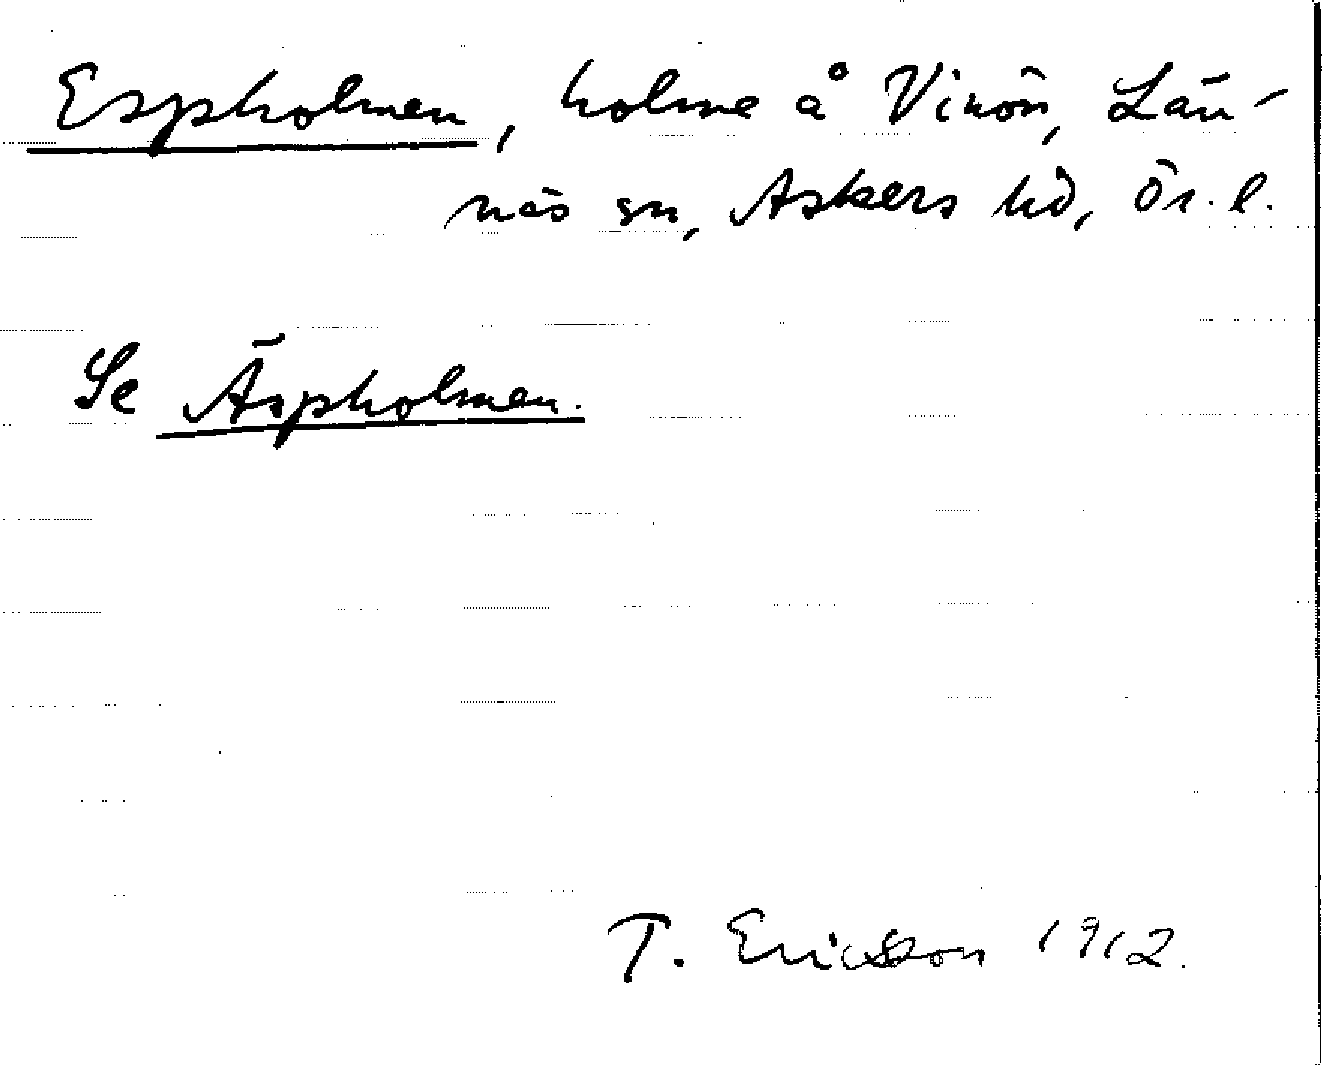 Espholmen, holme å Vinön, Län-
näs sn, Askers hd, Ör. l.
Se Äspholmen.
T. Ericsson 1912.